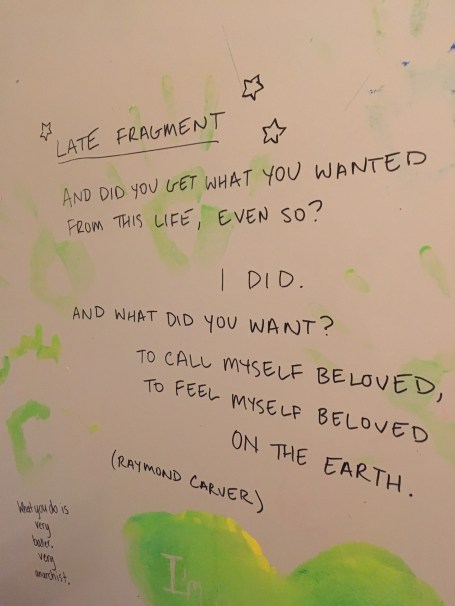 LATE FRAGMENT
AND DID YOU GET WHAT YOU WANTED
FROM THIS LIFE, EVEN SO?
I DID.
AND WHAT DID YOU WANT?
TO CALL MYSELF BELOVED,
TO FEEL MYSELF BELOVED
ON THE EARTH.
(RAYMOND CARVER)
What you do is
very
very
anarchist.
I'm